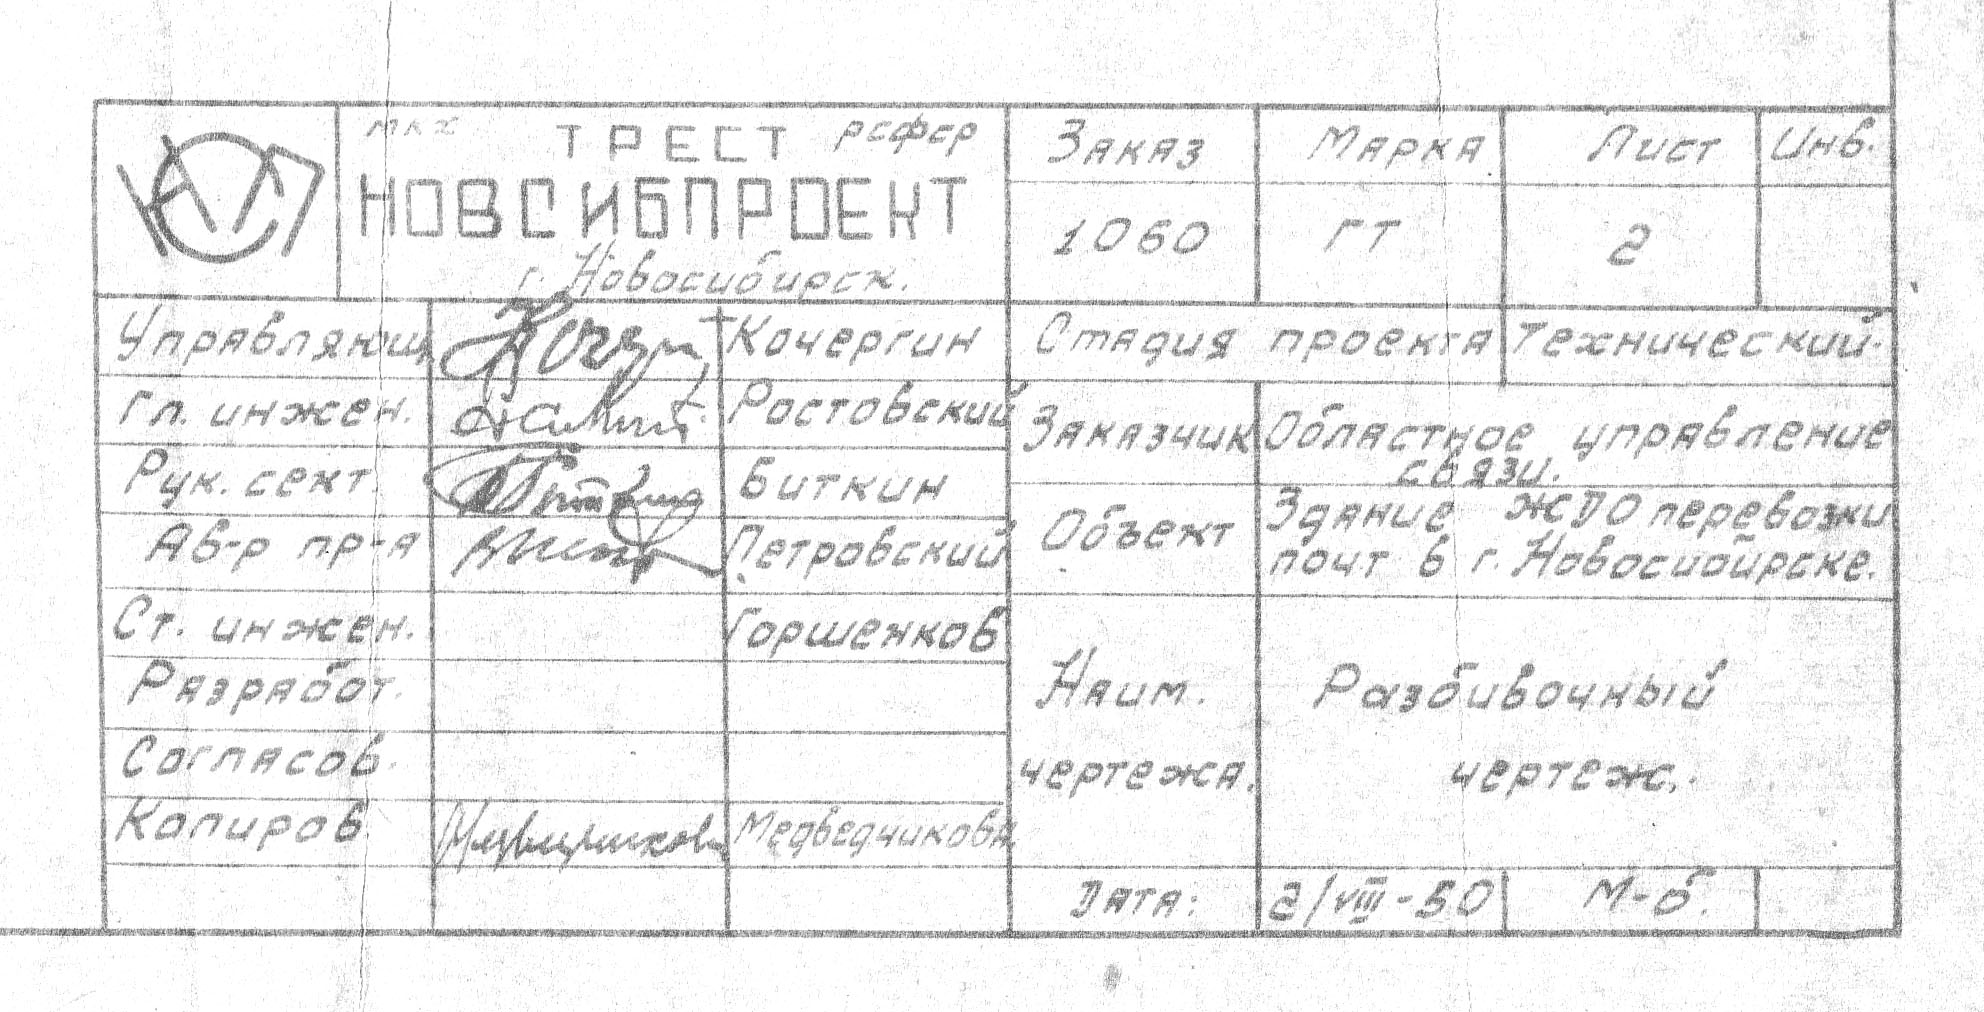 мкх ТРЕСТ рсфср
НОВСИБПРОЕКТ
г. Новосибирск.
Заказ Марка Лист Инв.
1060 ГТ 2
Управляющ. Кочергин
Гл. инжен. Ростовский
Рук. сект. Биткин
Ав-р пр-а Петровский
Ст. инжен. Горшенков
Разработ.
Согласов.
Копиров. Медведчикова
Стадия проекта Технический.
Заказчик Областное управление
связи.
Объект Здание ЖДО перевозки
почт в г. Новосибирске.
Наим. Разбивочный
чертежа. чертеж.
Дата: 2/VIII-50 М-б.